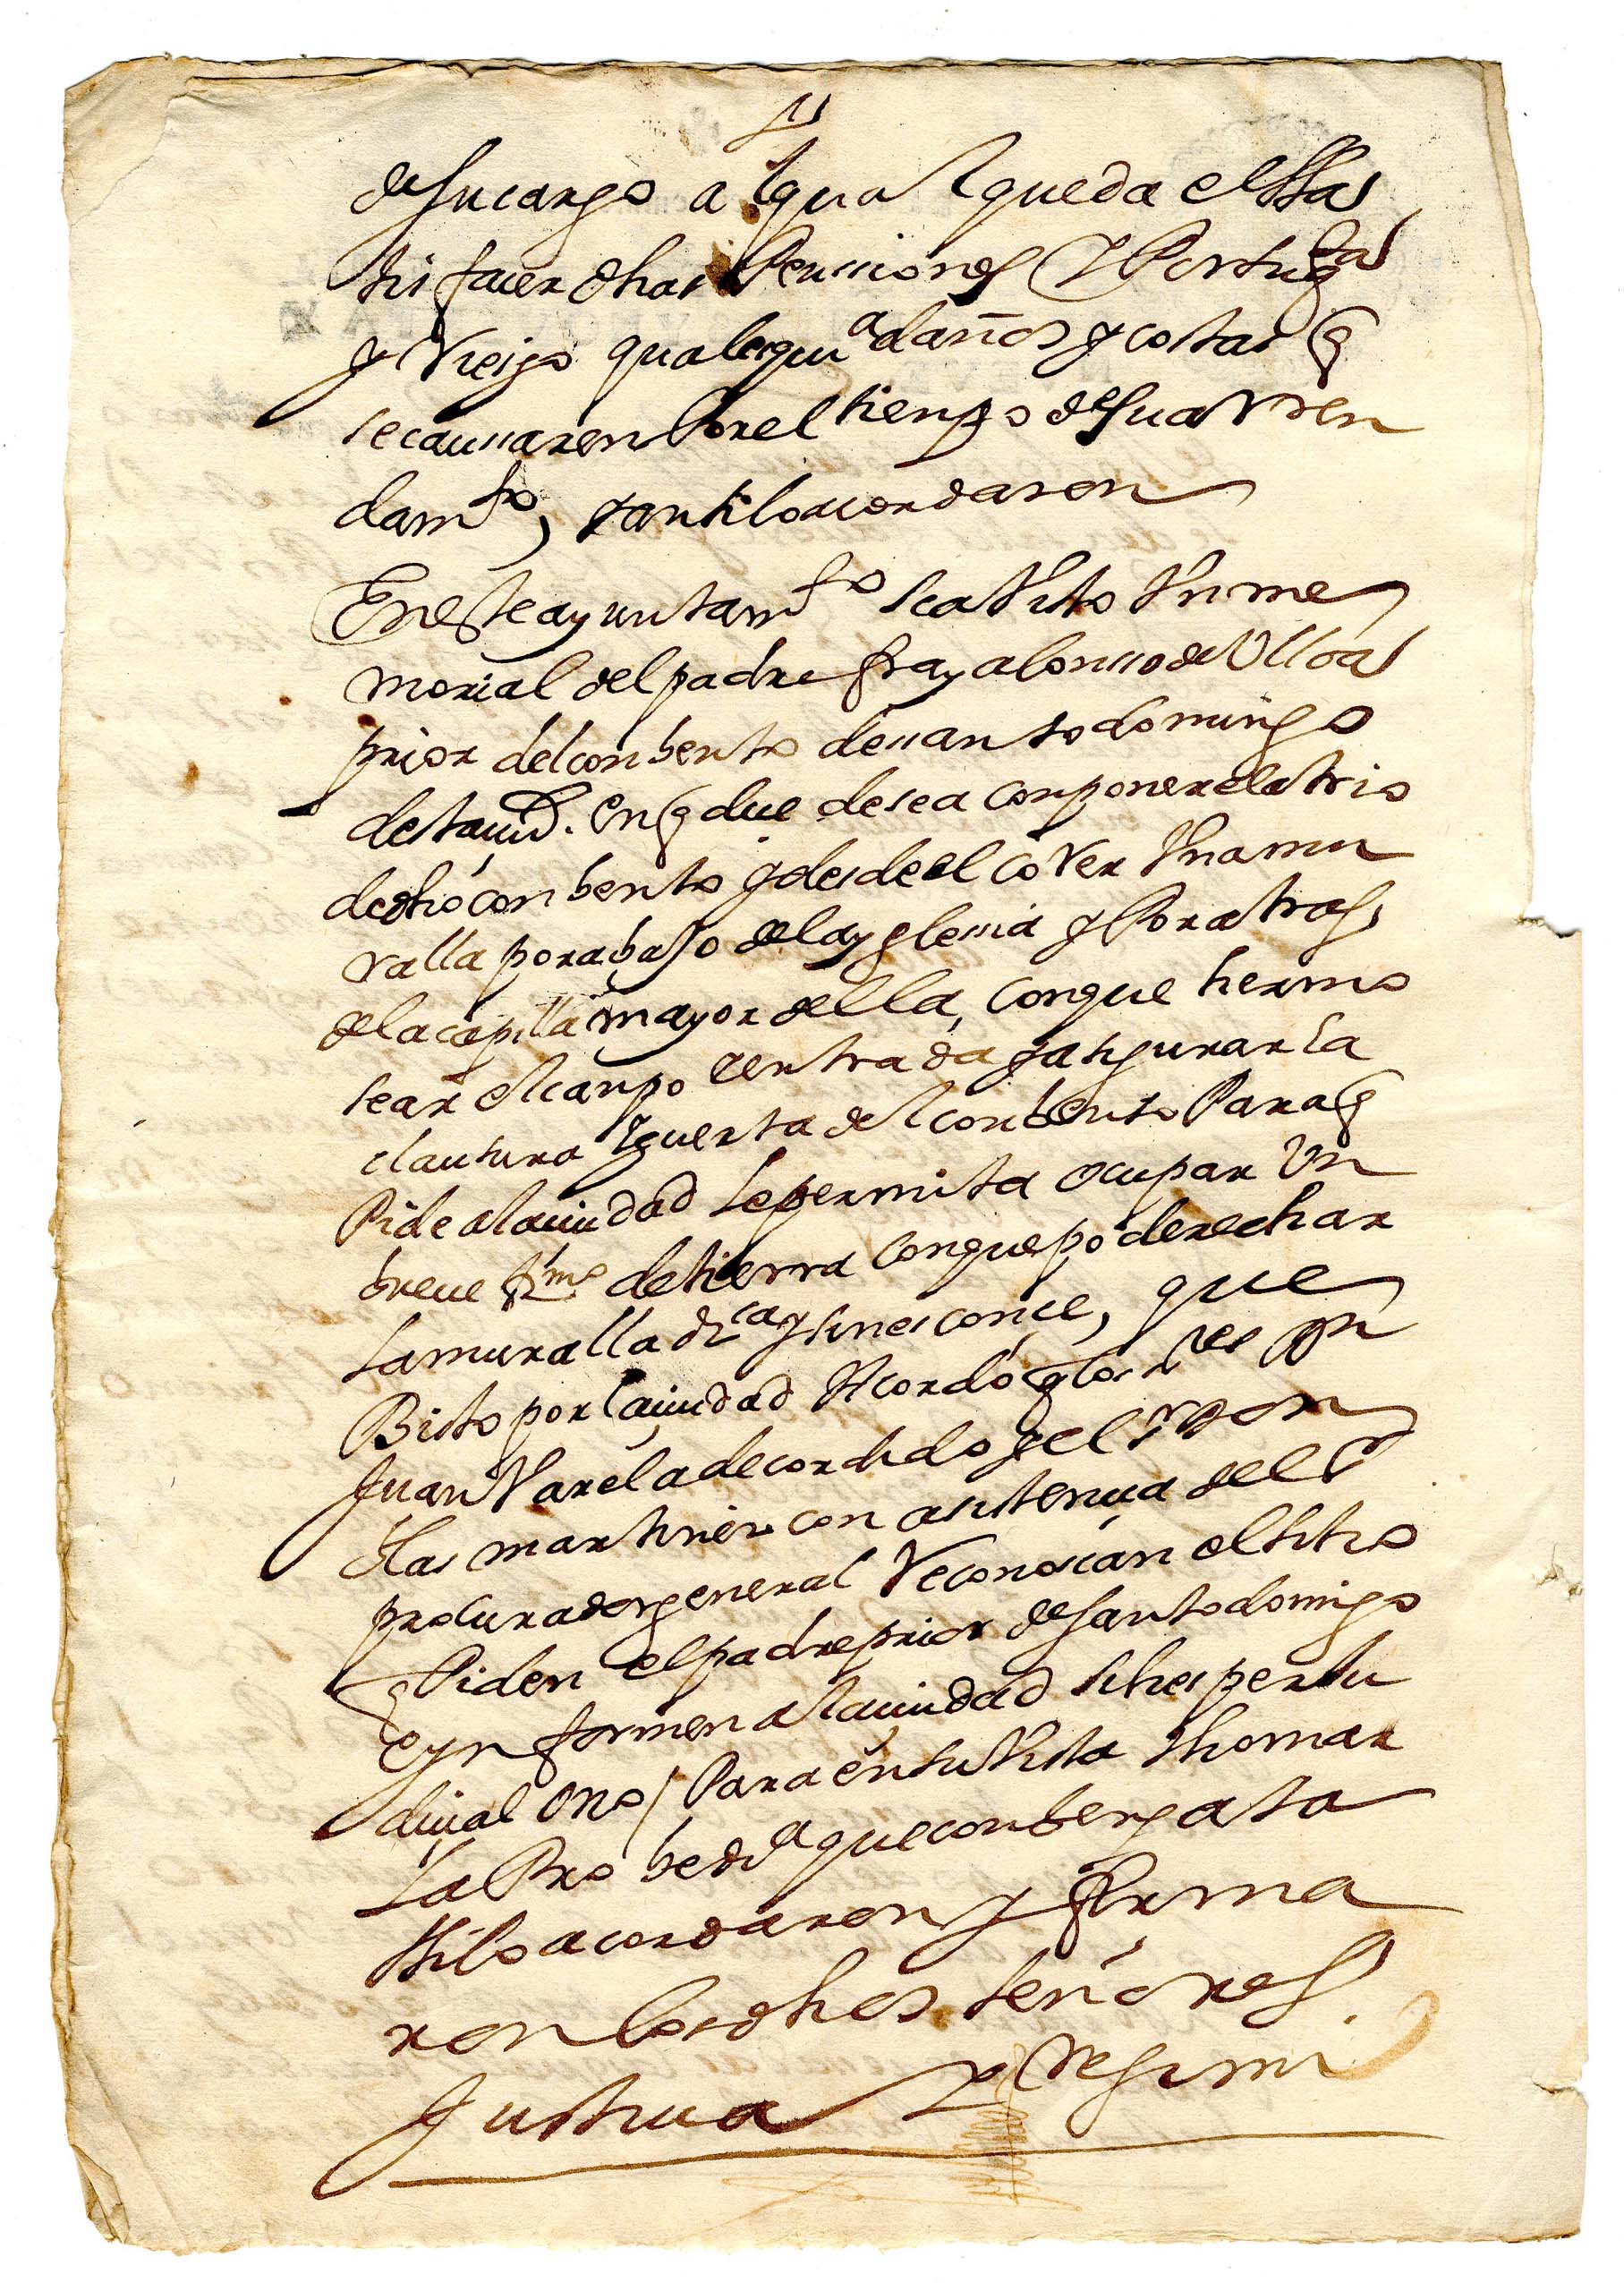 de su cargo a lqual queda el Sa
tisfacer dhas Penssiones Y Portuga
y Riesgo qualesqura daños y costas q
se caussaren Por el tienpo de su arren
damto, y ansi lo acordaron
En este ayuntamto sea Visto Vn me
morial del padre fray alonsso de Ulloa
prior del conbento de ssanto domingo
desta ciud. en q due desea conponer el atrio
de dho conbento y desde el coxer Vna mu
ralla por abaJo de la yglessia y Por atras
de la capilla mayor della, con que hermo
sear el canpo entrada y asigurar la
clausura guerta del conbento Para q
Pide a la ciudad le permita ocupar Un
breue de tierra con que poder echar
la muralla dra y sin esconce, que
Bisto por la ciudad Acordó q los sres Dn
Juan Varela de cordido y el sr Don
Blas martinez con asistencia del sr
procurador general Reconoscan el sitio
q Piden el padre prior de santo domingo
e ynformen a la ciudad si hes perJu
dicial o no / Para en su Vista thomar
la Probeda que conbenga ta
Asi lo acordaron y firma
ron los dhos señores
Justicia Y Regimi